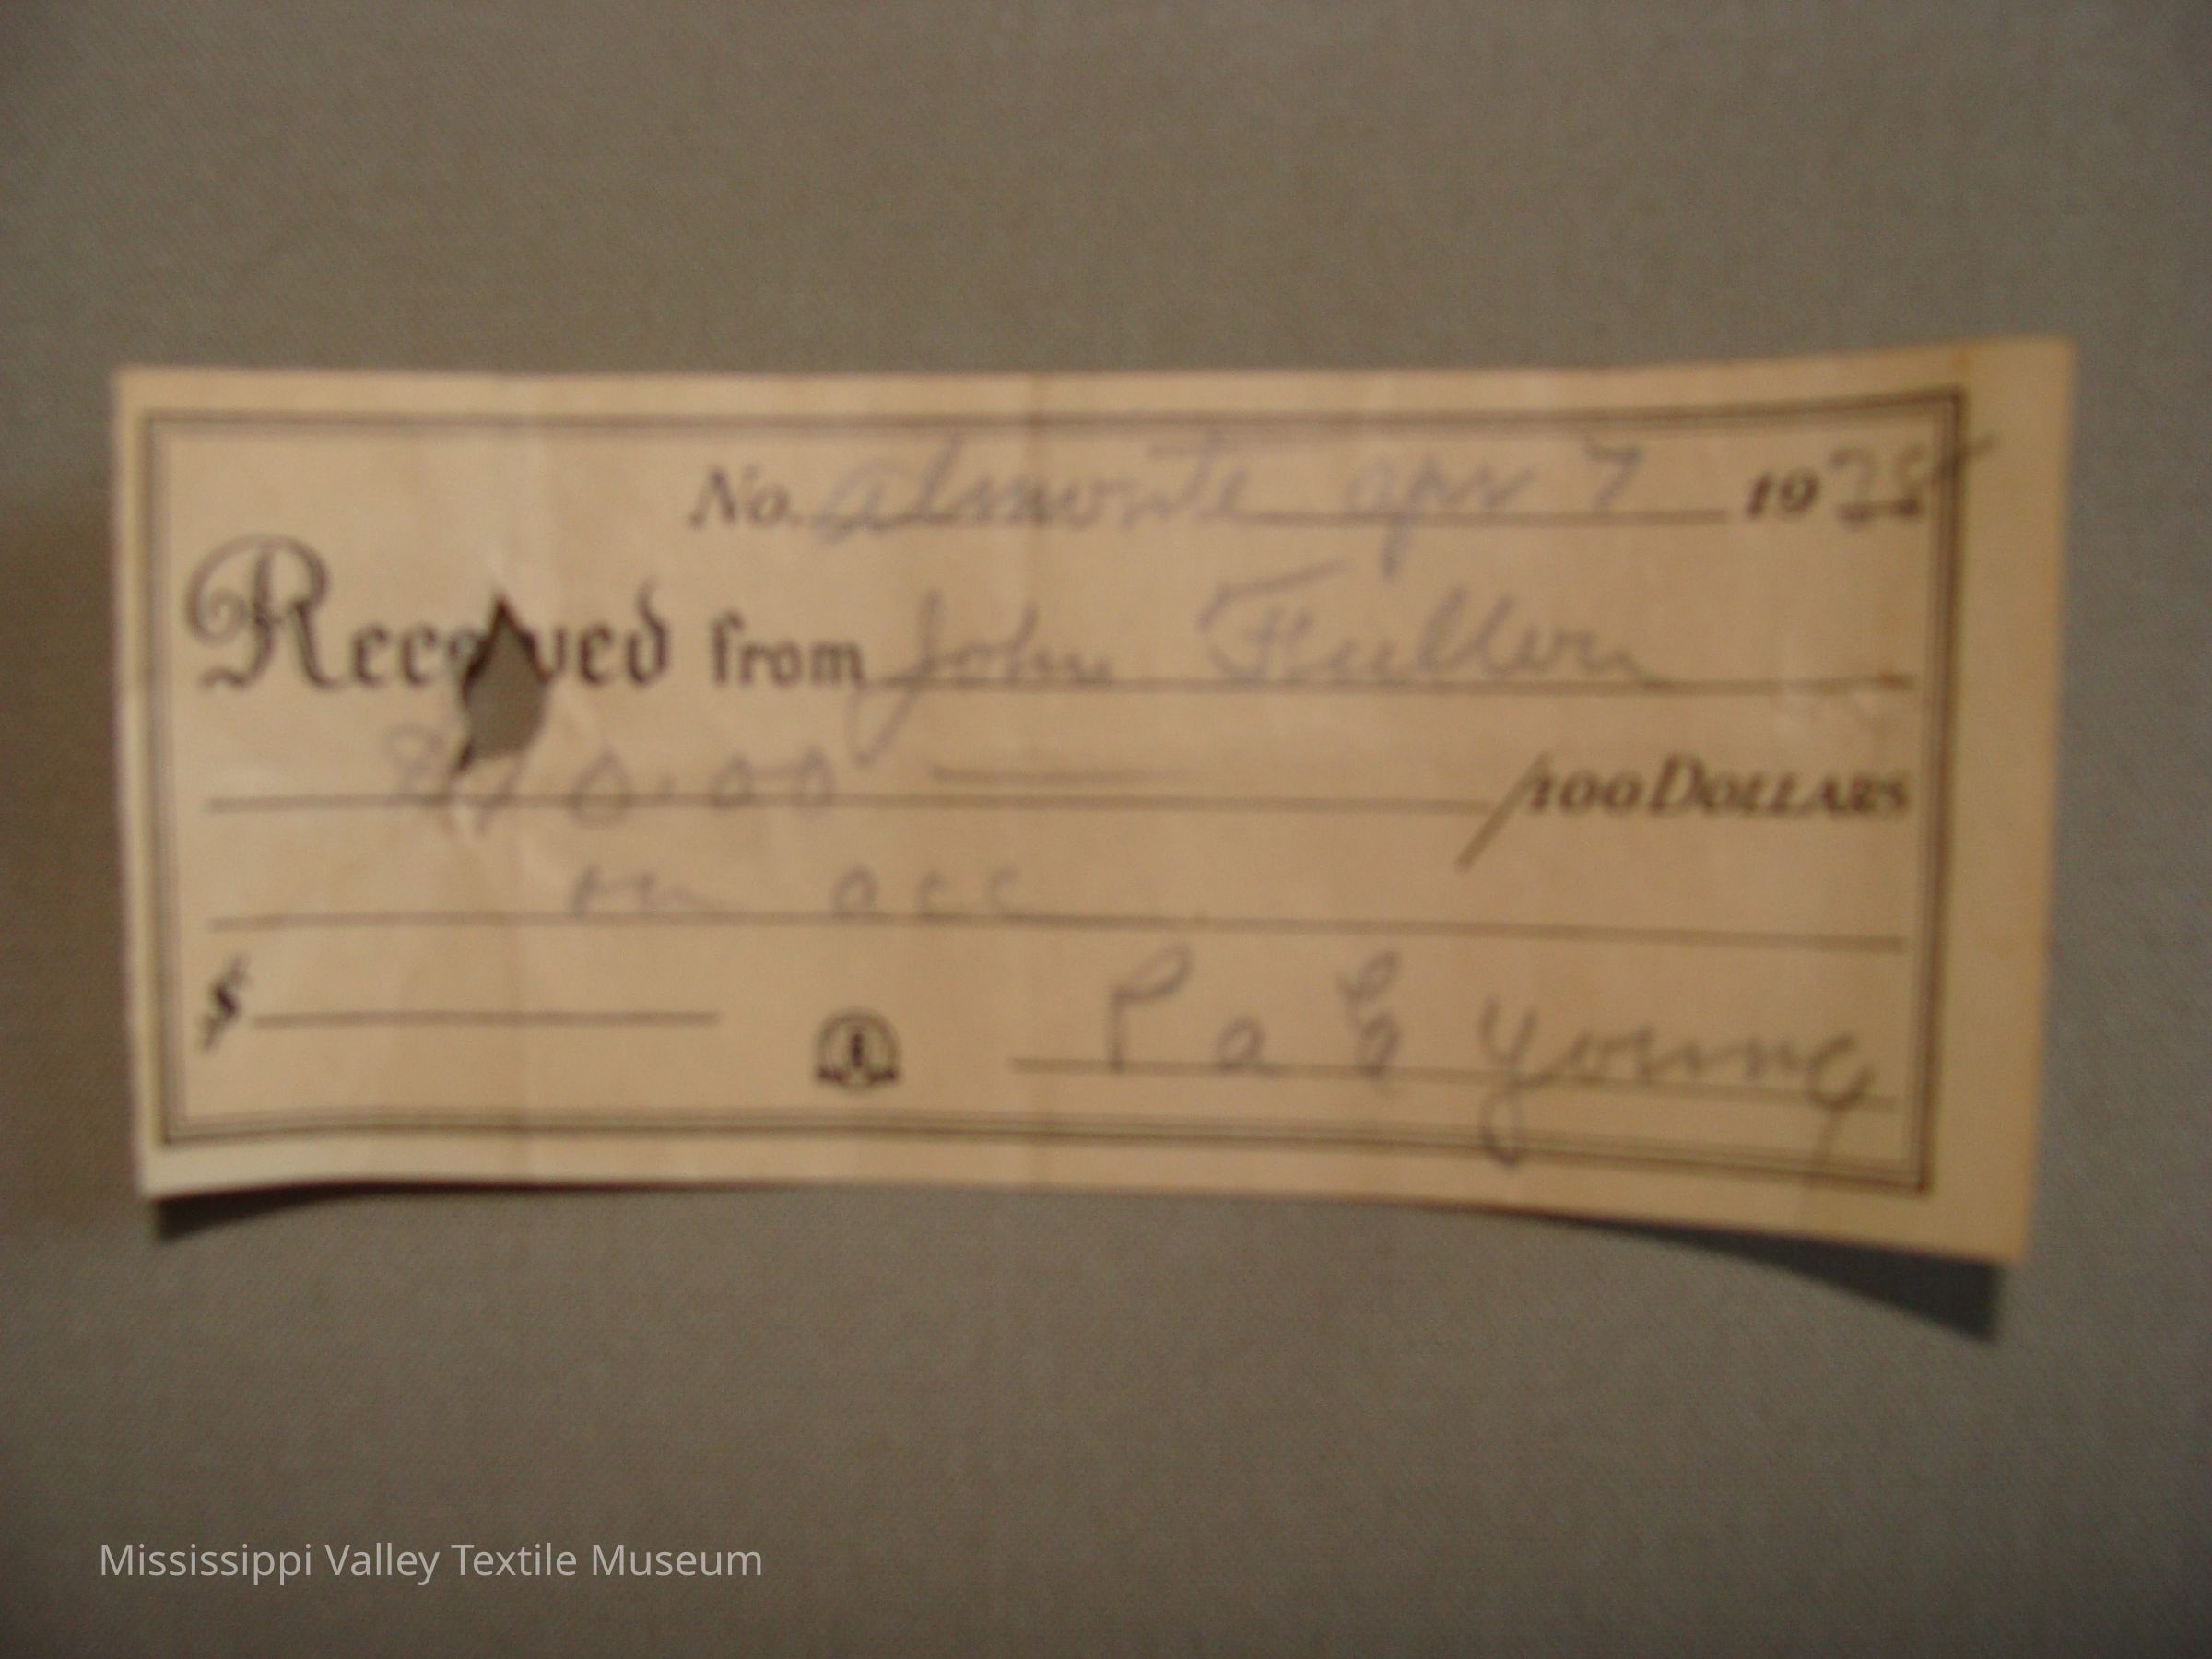 No. Almonte Apr 7 19
Received from John Fuller
0.00 /100 DOLLARS
on acc
$
P a E Young
Mississippi Valley Textile Museum